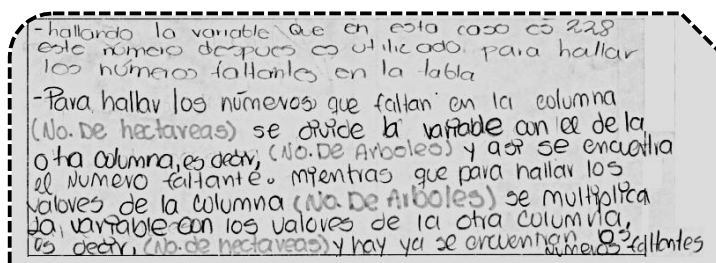 -hallando la variable que en esta caso es 228
este número despues es utilicado para hallar
los números faltantes en la tabla
-Para hallar los números que faltan en la columna
(No. De hectareas) se divide la variable con el de la
otra columna, es decir, (No. De Arboles) y asi se encuentra
el Numero faltante. mientras que para hallar los
valores de la columna (No. De Arboles) se multiplica
la variable con los valores de la otra columna,
es decir, (No. de hectareas) y hay ya se encuentran los
números faltantes